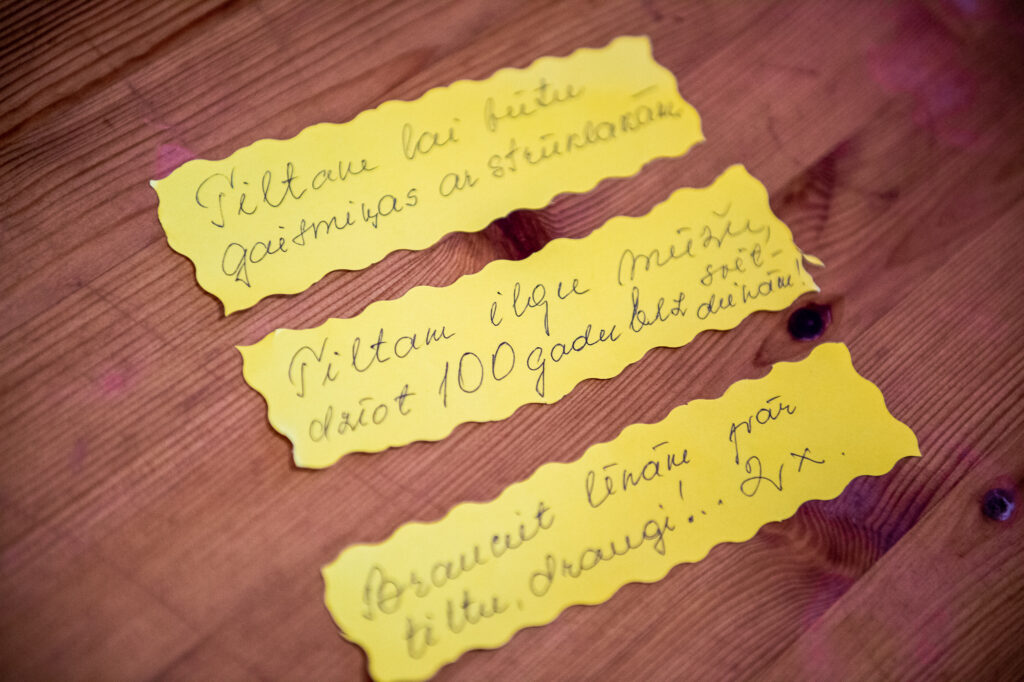 Tiltam lai būtu
gaismiņas ar strūklakām.
Tiltam ilgu mūžu,
dzīot 100 gadu bez svēt-
dienām!
Brauciet lēnām pār
tiltu, draugi!... 2x.